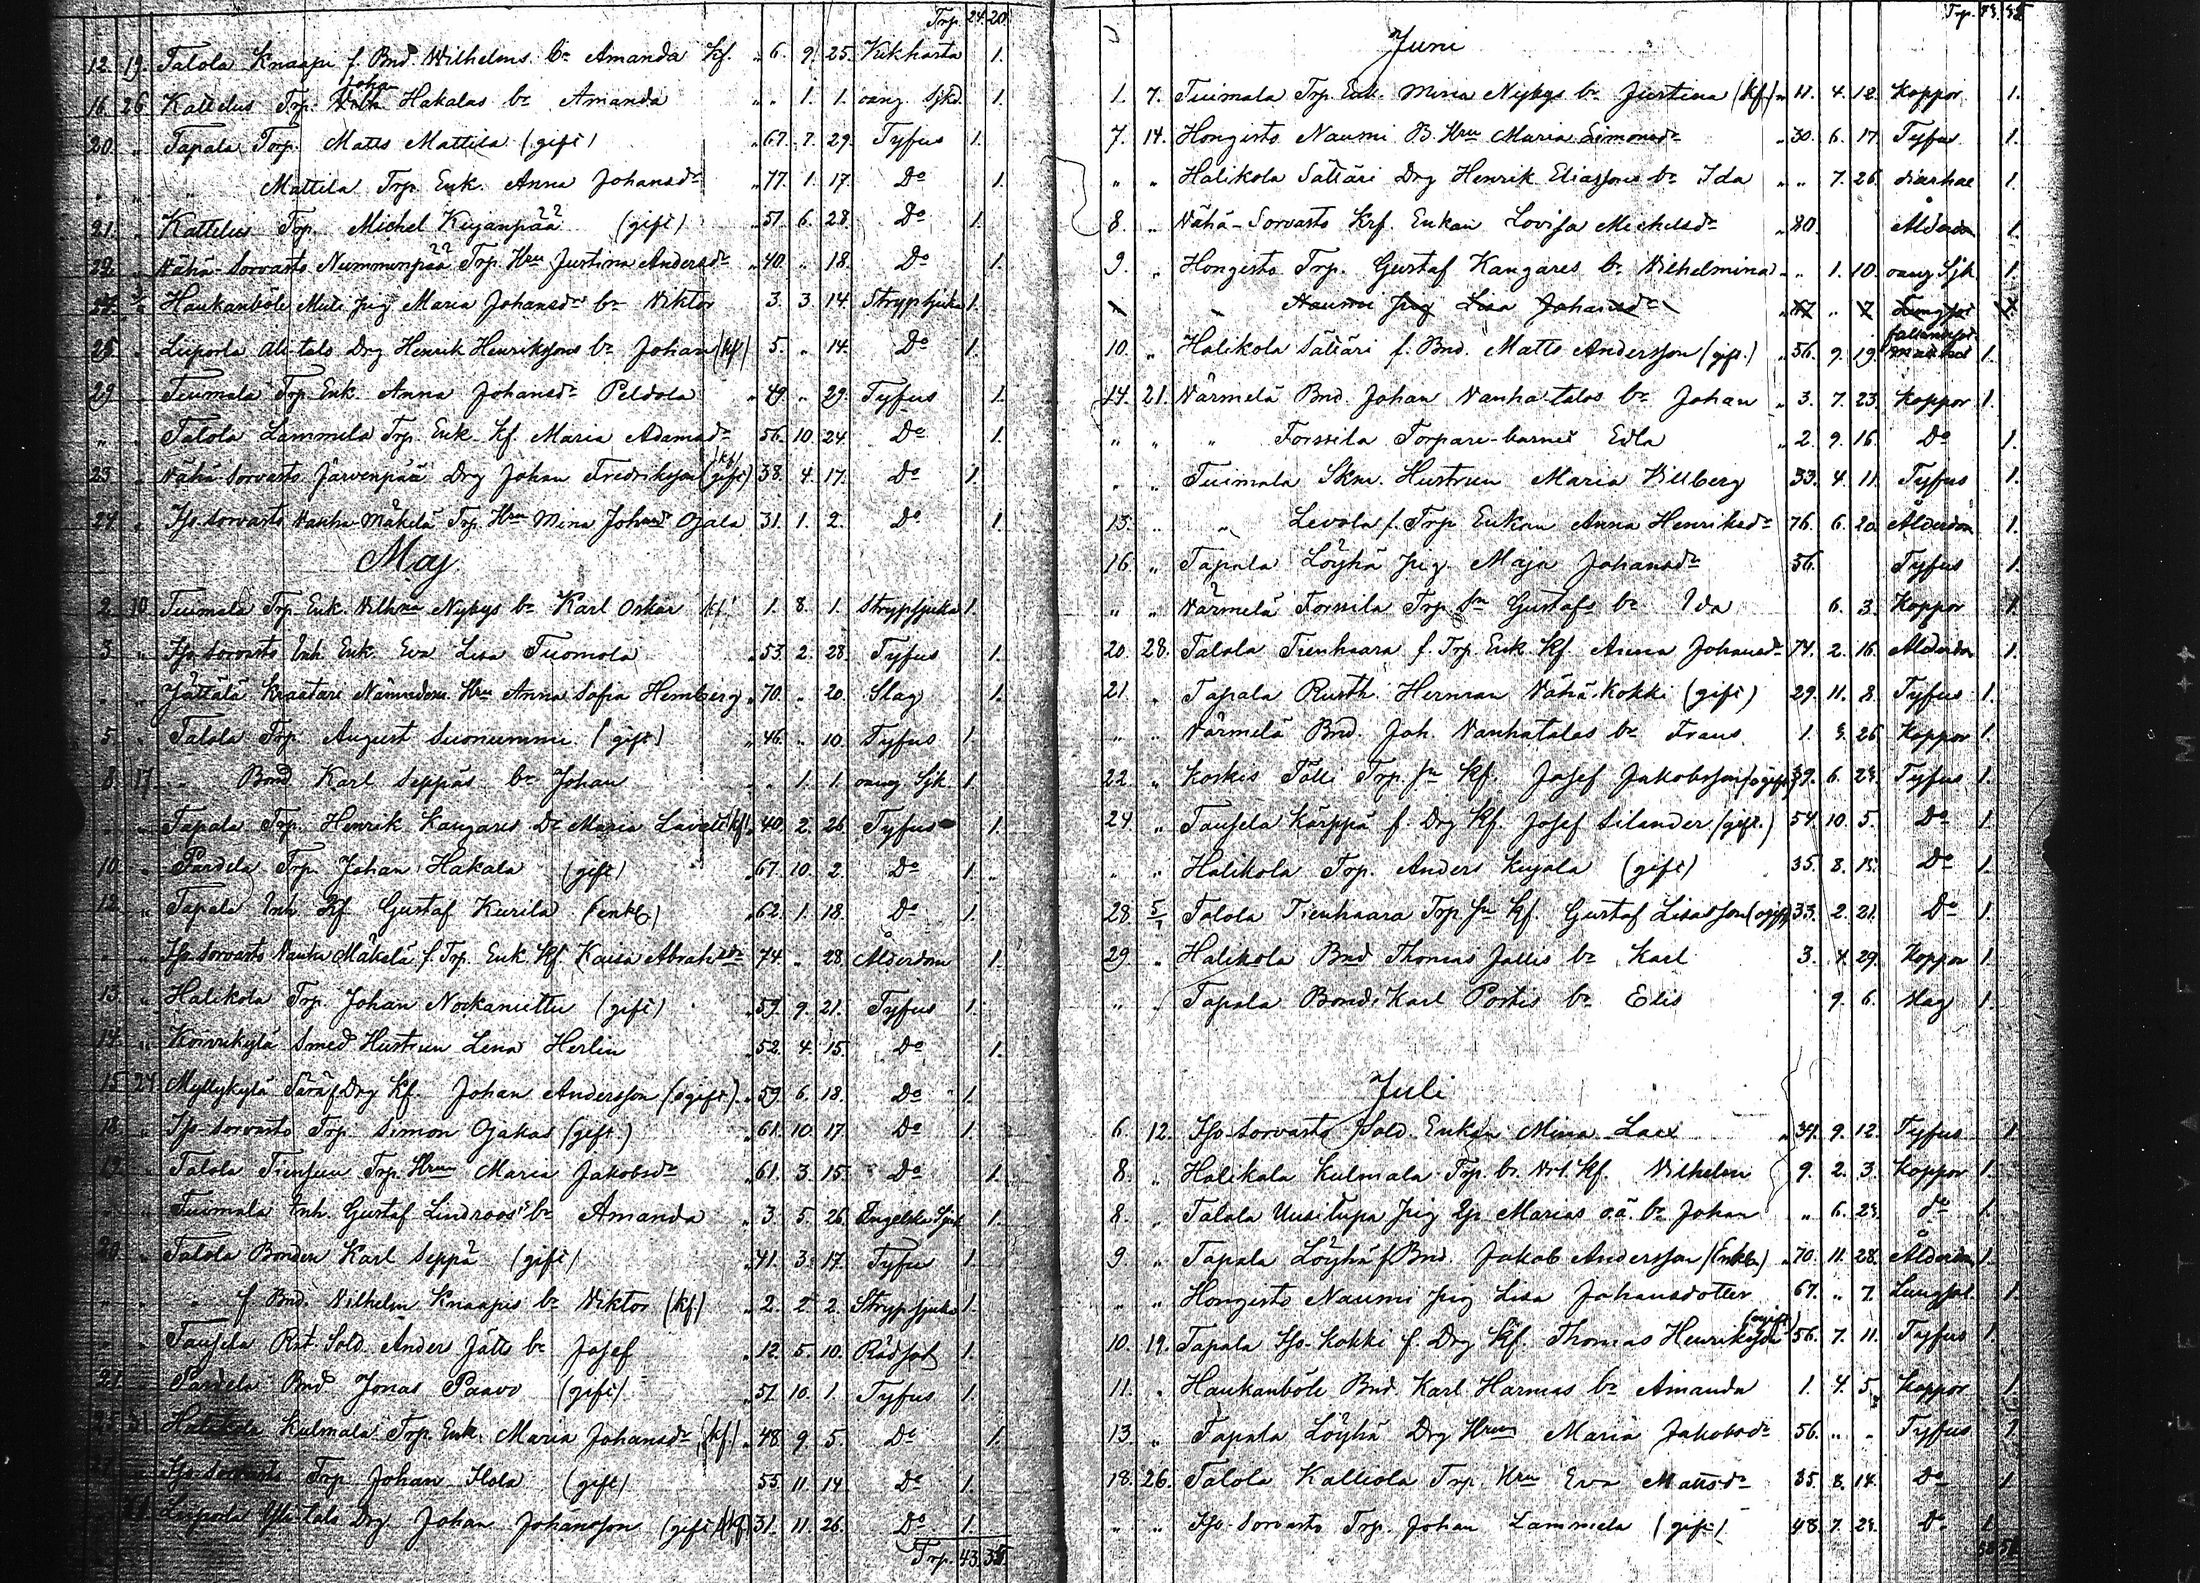 Trp. 24. 20.
12. 19. Talola Knaapi f. Bnd. Wilhelms bn Amanda kf. " 6. 9. 25. Kikhosta 1.
16. 26. Kattelus Trp. Johan Hakalas bn Amanda " " 1. 1. oang. Sjkd. 1.
20. " Tapala Torp. Matts Mattila (gift) " 67. 7. 29. Tyfus 1.
" " " Mattila Trp. Enk. Anna Johansdr " 77. 1. 17. Do 1.
21. " Kattelus Trp. Michel Kujanpää (gift) " 57. 6. 28. Do 1.
22. " Vähä-Sorvasto Nummenpää Trp. Hru Justina Andersdr " 40. " 18. Do 1.
Haukanböle Piig Maria Johansdr bn Viktor 3. 3. 14. Strypsjuka 1.
25. " Liiporla Ali-talo Drg Henrik Henrikssons bn Johan (kf) 5. " 14. Do 1.
29. " Tuimala Trp. Enk. Anna Johansdr Peldola " 49. " 29. Tyfus 1.
" " Talola Lammila Trp. Enk. kf. Maria Adamsdr " 56. 10. 24. Do 1.
23. " Vähä-Sorvasto Järvenpää Drg Johan Fredriksson (gift) kf 38. 4. 17. Do 1.
24. " Iso-Sorvasto Vanha-Mäkilä Trp. Hru Mina Johansdr Ojala 31. 1. 2. Do 1.
Maj
2. 10. Tuimala Trp. Enk. Vilhna Nybys bn Karl Oskar kf 1. 8. 1. Strypsjuka 1.
3. " Iso-Sorvasto Inh. Enk. Eva Lisa Tuomola " 53. 2. 28. Tyfus 1.
" " Jättälä Kraatari Nämndem. Hru Anna Sofia Hemberg " 70. " 20. Slag 1.
5. " Talola Trp. August Suonummi (gift) " 46. " 10. Tyfus 1.
8. 17. " Bond Karl Seppäs bn Johan " " 1. 1. oang. Sjk. 1.
" " Tapala Trp. Henrik Kangaris Dr Maria (kf) " 40. 2. 26. Tyfus 1.
10. " Pardela Trp. Johan Hakala (gift) " 67. 10. 2. Do 1.
12. " Tapala Inh. kf. Gustaf Kurila (enkl) " 62. 1. 18. Do 1.
" " Iso-Sorvasto Vanha Mäkelä f. Trp. Enk. kf. Kaisa Abrahsdr " 74. " 28. Ålderdom 1.
13. " Halikola Trp. Johan Nokanuttu (gift) " 59. 9. 21. Tyfus 1.
14. " Koivukylä Smed Hustrun Lena Herlin " 52. 4. 15. Do 1.
15. 24. Myllykylä f. Drg kf. Johan Andersson (ogift) " 59. 6. 18. Do 1.
18. " Iso-Sorvasto Trp. Simon Ojakas (gift) " 61. 10. 17. Do 1.
19. " Talola Tiensuu Trp. Hru Maria Jakobsdr " 61. 3. 15. Do 1.
" " Tuimala Inh. Gustaf Lindroos's bn Amanda " 3. 5. 26. Engelska Sjuk. 1.
20. " Talola Bonden Karl Seppä (gift) " 41. 3. 17. Tyfus 1.
" " " f. Bnd. Vilhelm Knaapis bn Viktor (kf) " 2. 2. 2. Strypsjuka 1.
" " Taufela Rst. Sold. Anders Jätts bn Josef " 12. 5. 10. Rödsot 1.
21. " Pardela Bnd Jonas Paavo (gift) " 57. 10. 1. Tyfus 1.
25. 31. Halikola Kulmala Trp. Enk. Maria Johansdr (kf) " 48. 9. 5. Do 1.
27. " Iso-Sorvasto Trp. Johan Ilola (gift) 55. 11. 14. Do 1.
Liiporla Yli-talo Drg Johan Johansson (gift) kf 31. 11. 26. Do 1.
Trp. 43. 35.
Trp. 43. 35.
Juni
1. 7. Tuimala Trp. Enk. Mina Nybys bn Justina (kf) " 11. 4. 12. Koppor 1.
7. 14. Hongisto Naumi B. Hru Maria Simonsdr " 30. 6. 17. Tyfus 1.
" " Halikola Sätäri Drg Henrik Eliassons bn Ida " " 7. 26. diarhae 1.
8. " Vähä-Sorvasto Krf. Enkan Lovisa Michelsdr " 80. Ålderdom 1.
9. " Hongisto Trp. Gustaf Kangares bn Vilhelmina " " 1. 10. oang. Sjk. 1.
" Naumi Piig Lisa Johansdr " 67 " 7 Lungsot 1.
10. " Halikola Sätäri f. Bnd. Matts Andersson (gift) " 56. 9. 19. 1.
14. 21. Värmelä Bnd. Johan Vanhatalos bn Johan " 3. 7. 23. Koppor 1.
" " " Forssila Torpare-barnet Edla " 2. 9. 16. Do 1.
" " Tuimala Skm. Hustrun Maria Villberg 33. 4. 11. Tyfus 1.
15. " " Levola f. Trp. Enkan Anna Henriksdr 76. 6. 20. Ålderdom 1.
16. " Tapala Löyhä Piig. Maja Johansdr 56. Tyfus 1.
" " Värmelä Forssila Trp. Sn Gustafs bn Ida 6. 3. Koppor 1.
20. 28. Talola Tienhaara f. Trp. Enk. kf. Anna Johansdr 74. 2. 16. Ålderdom 1.
21. " Tapala Rusth. Herman Vähä-Kokki (gift) 29. 11. 8. Tyfus 1.
" " Värmelä Bnd. Joh. Vanhatalos bn Frans 1. 3. 26. Koppor 1.
22. " Koskis Tolli Trp. Sn kf. Josef Jakobsson (ogift) 39. 6. 23. Tyfus 1.
24. " Taufela Kärppä f. Drg kf. Josef Silander (gift.) 54. 10. 5. Do 1.
" " Halikola Trp. Anders Kujala (gift) 35. 8. 15. Do 1.
28. 5/7 Talola Tienhaara Trp. Sn kf. Gustaf Lisasson (ogift) 33. 2. 21. Do 1.
29. " Halikola Bnd Thomas Jallis bn Karl 3. 4. 29. Koppor 1.
" " Tapala Bond. Karl Poskis bn Elis 9. 6. slag 1.
Juli
6. 12. Iso-Sorvasto Sold. Enkan Mina Laex " 39. 9. 12. Tyfus 1.
8. " Halikala Kulmala Trp. bn kf. Vilhelm 9. 2. 3. Koppor 1.
8. " Talola Uusitupa Piig Marias o.ä. bn Johan " 6. 23. do 1.
9. " Tapala Löyhä f. Bnd. Jakob Andersson (Enkl.) " 70. 11. 28. Ålderdom 1.
" " Hongisto Naumi Piig Lisa Johansdotter 67. " 7. Lungsot 1.
10. 19. Tapala Iso-Kokki f. Drg kf. Thomas Henriksson (ogift) 56. 7. 11. Tyfus 1.
11. " Haukanböle Bnd. Karl Harmas bn Amanda 1. 4. 5. Koppor 1.
13. " Tapala Löyhä Drg Hru Maria Jakobsdr 56. " " Tyfus 1.
18. 26. Talola Kalliola Trp. Hru Eva Mattsdr 35. 8. 14. Do 1.
" " Iso-Sorvasto Trp. Johan Lammela (gift) 48. 7. 23. Do 1.